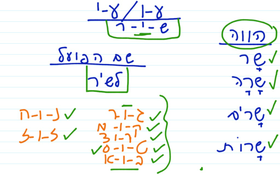 הווה
שָר
שָרָה
שָרִים
שָרוֹת
ע-ו/ע-י
ש-י-ר
שם הפועל
לשיר
ג-ו-ר
ק-ו-מ
ר-ו-צ
ט-ו-ס
ב-ו-א
נ-ו-ח
ז-ו-ז